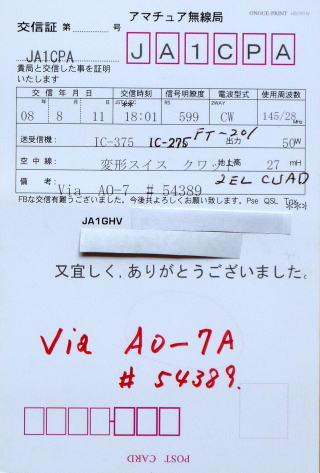 ONOUE-PRINT
アマチュア無線局
交信証 第 号
JA1CPA
JA1CPA
貴局と交信した事を証明
いたします
交信年月日 交信時刻 信号明瞭度 電波型式 使用周波数
年 月 日 RS 2WAY
08 8 11 18:01 599 CW 145/28 MHz
送受信機 IC-375 IC-275 FT-201 出力 50W
空中線 変形スイス クワット 地上高 27 mH
備考 Via AO-7 # 54389 2EL CUAD
FBな交信有難うございました。今後共よろしくお願い致します。Pse QSL Tnx
***
JA1GHV
又宜しく,ありがとうございました。
Via AO-7A
# 54389.
POST CARD